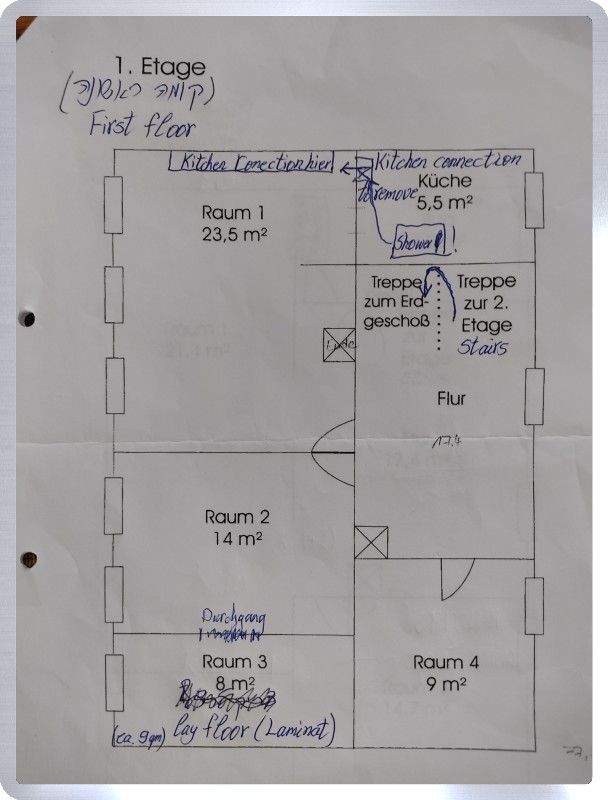 1. Etage
(קומה ראשונה)
First floor
Kitchen Conection hier
Kitchen connection
to remove
Küche
5,5 m²
Raum 1
23,5 m²
Shower !
Treppe
zum Erd-
geschoß
Treppe
zur 2.
Etage
Stairs
Flur
17.4
Raum 2
14 m²
Durchgang
Raum 3
8 m²
(ca. 9 qm) lay floor (Laminat)
Raum 4
9 m²